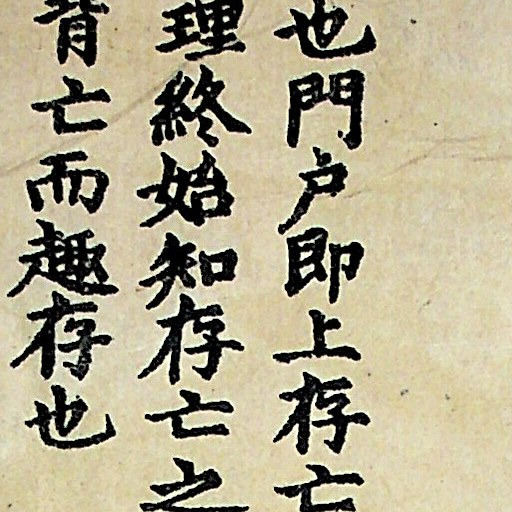 也門户即上存亡
理終始知存亡之
背亡而趣存也